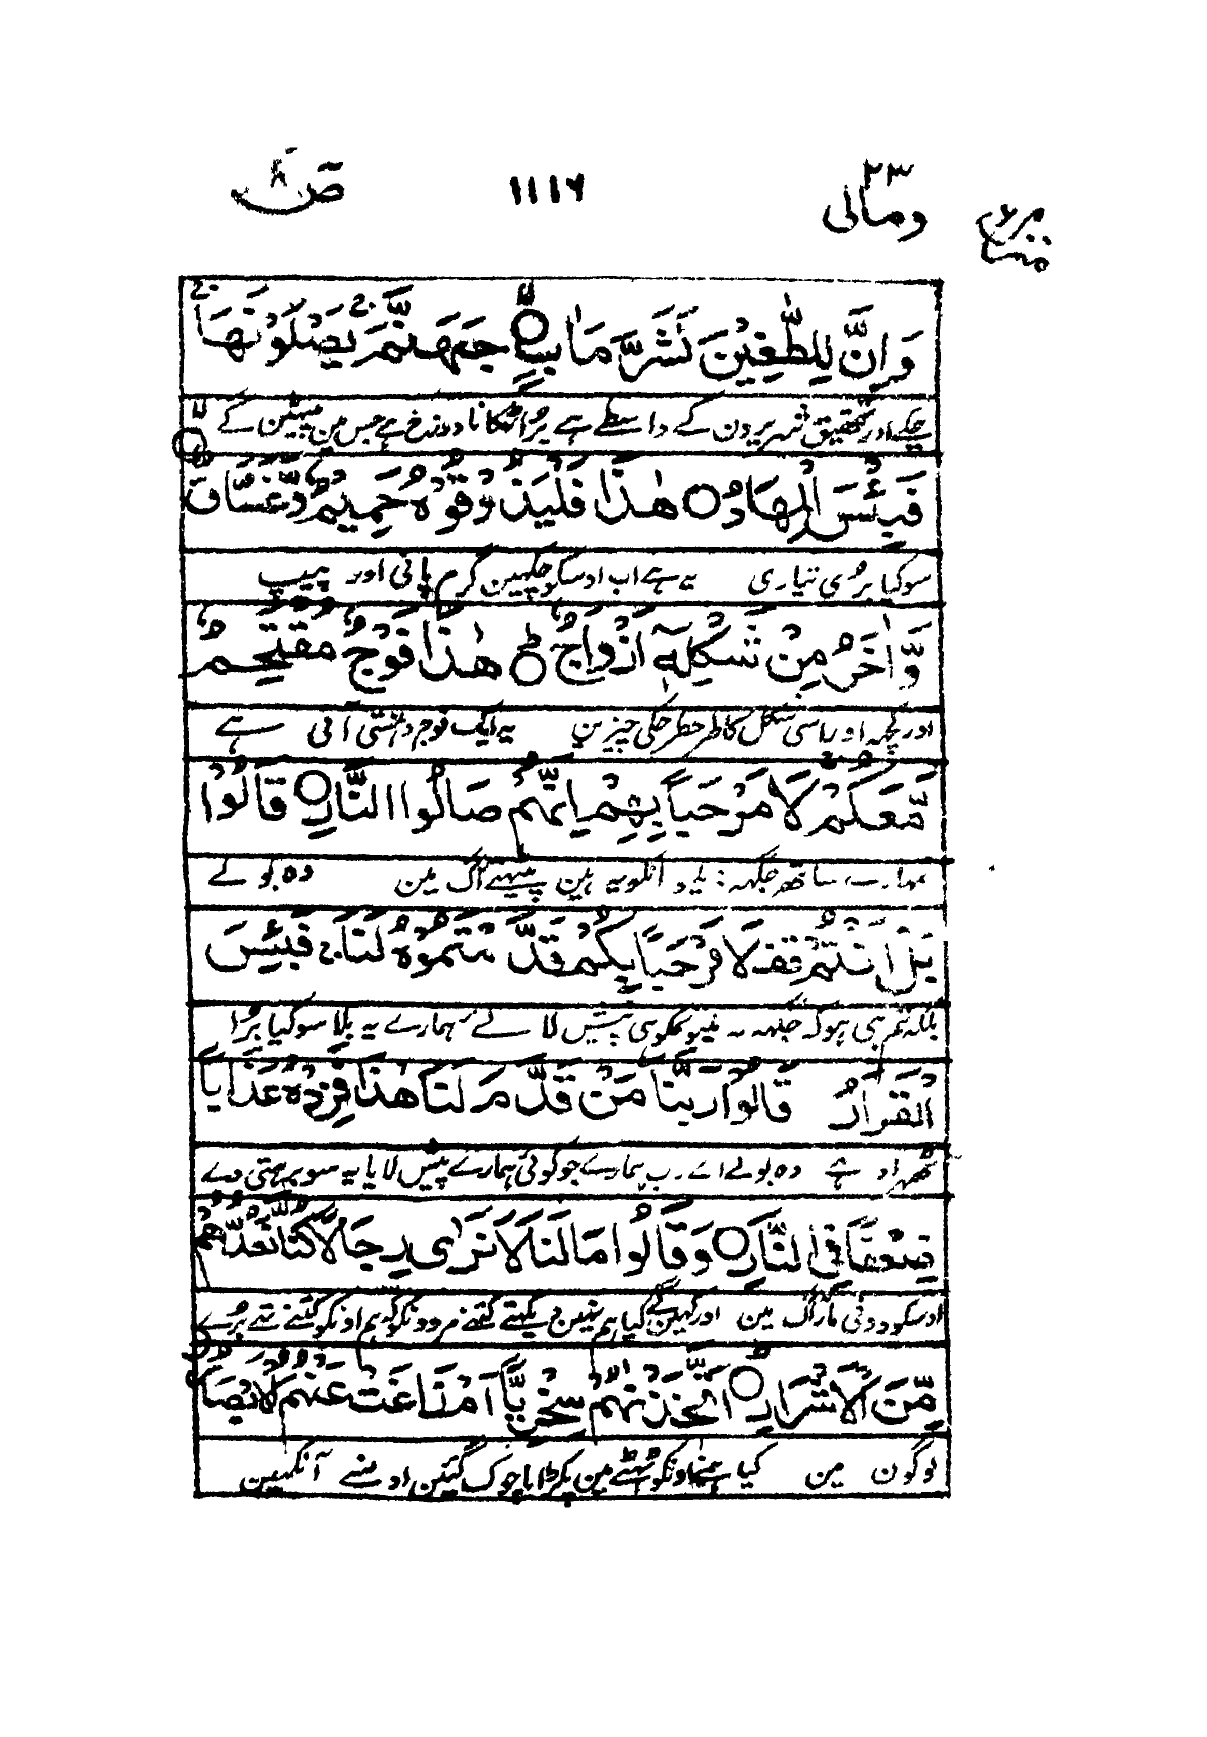 ومالی ٢٣
١١١٦
صٓ
وَاِنَّ لِلطّٰغِیْنَ لَشَرَّ مَاٰبٍ جَهَنَّمَ یَصْلَوْنَهَا
تحقیق شریرون کے واسطے ہے بُرا ٹھکانا دوزخ ہے جس مین پیٹہین گے
فَبِئْسَ الْمِهَادُ هٰذَا فَلْیَذُوْقُوْهُ حَمِیْمٌ وَّغَسَّاقٌ
سو کیا بری تیاری یہ ہے اب اوسکو چکہین گرم پانی اور پیپ
وَّاٰخَرُ مِنْ شَكْلِهٖٓ اَزْوَاجٌ هٰذَا فَوْجٌ مُّقْتَحِمٌ
اور کچھہ اور اسی شکل کا طرح طرحکی چیزین یہ ایک فوج دہنستی آتی ہے
مَّعَكُمْ لَا مَرْحَبًا بِهِمْ اِنَّهُمْ صَالُوا النَّارِ قَالُوْا
تمہارے ساتھہ جگہہ آگ مین وہ بولے
بَلْ اَنْتُمْ لَا مَرْحَبًا بِكُمْ قَدَّمْتُمُوْهُ لَنَا فَبِئْسَ
بلکہ تم ہی ہو کہ جگہہ نہ پیش لائے ہمارے یہ بلا سو کیا بُرا
الْقَرَارُ قَالُوْا رَبَّنَا مَنْ قَدَّمَ لَنَا هٰذَا فَزِدْهُ عَذَابًا
ٹھہراو ہے وہ بولے اے رب ہمارے جو کوئی ہمارے پیش لایا یہ سو بڑہتی دے
ضِعْفًا فِی النَّارِ وَقَالُوْا مَا لَنَا لَا نَرٰی رِجَالًا كُنَّا نَعُدُّهُمْ
اوسکو دونی مار آگ مین اور کہین گے کیا ہم نہین دیکہتے کتنے مردونکو کہ ہم اونکو گنتے تہے بُرے
مِّنَ الْاَشْرَارِ اَتَّخَذْنٰهُمْ سِخْرِیًّا اَمْ زَاغَتْ عَنْهُمُ الْاَبْصَارُ
لوگون مین کیا ہمنے اونکو ٹہٹے مین پکڑا یا چوک گئین اون سے آنکہین